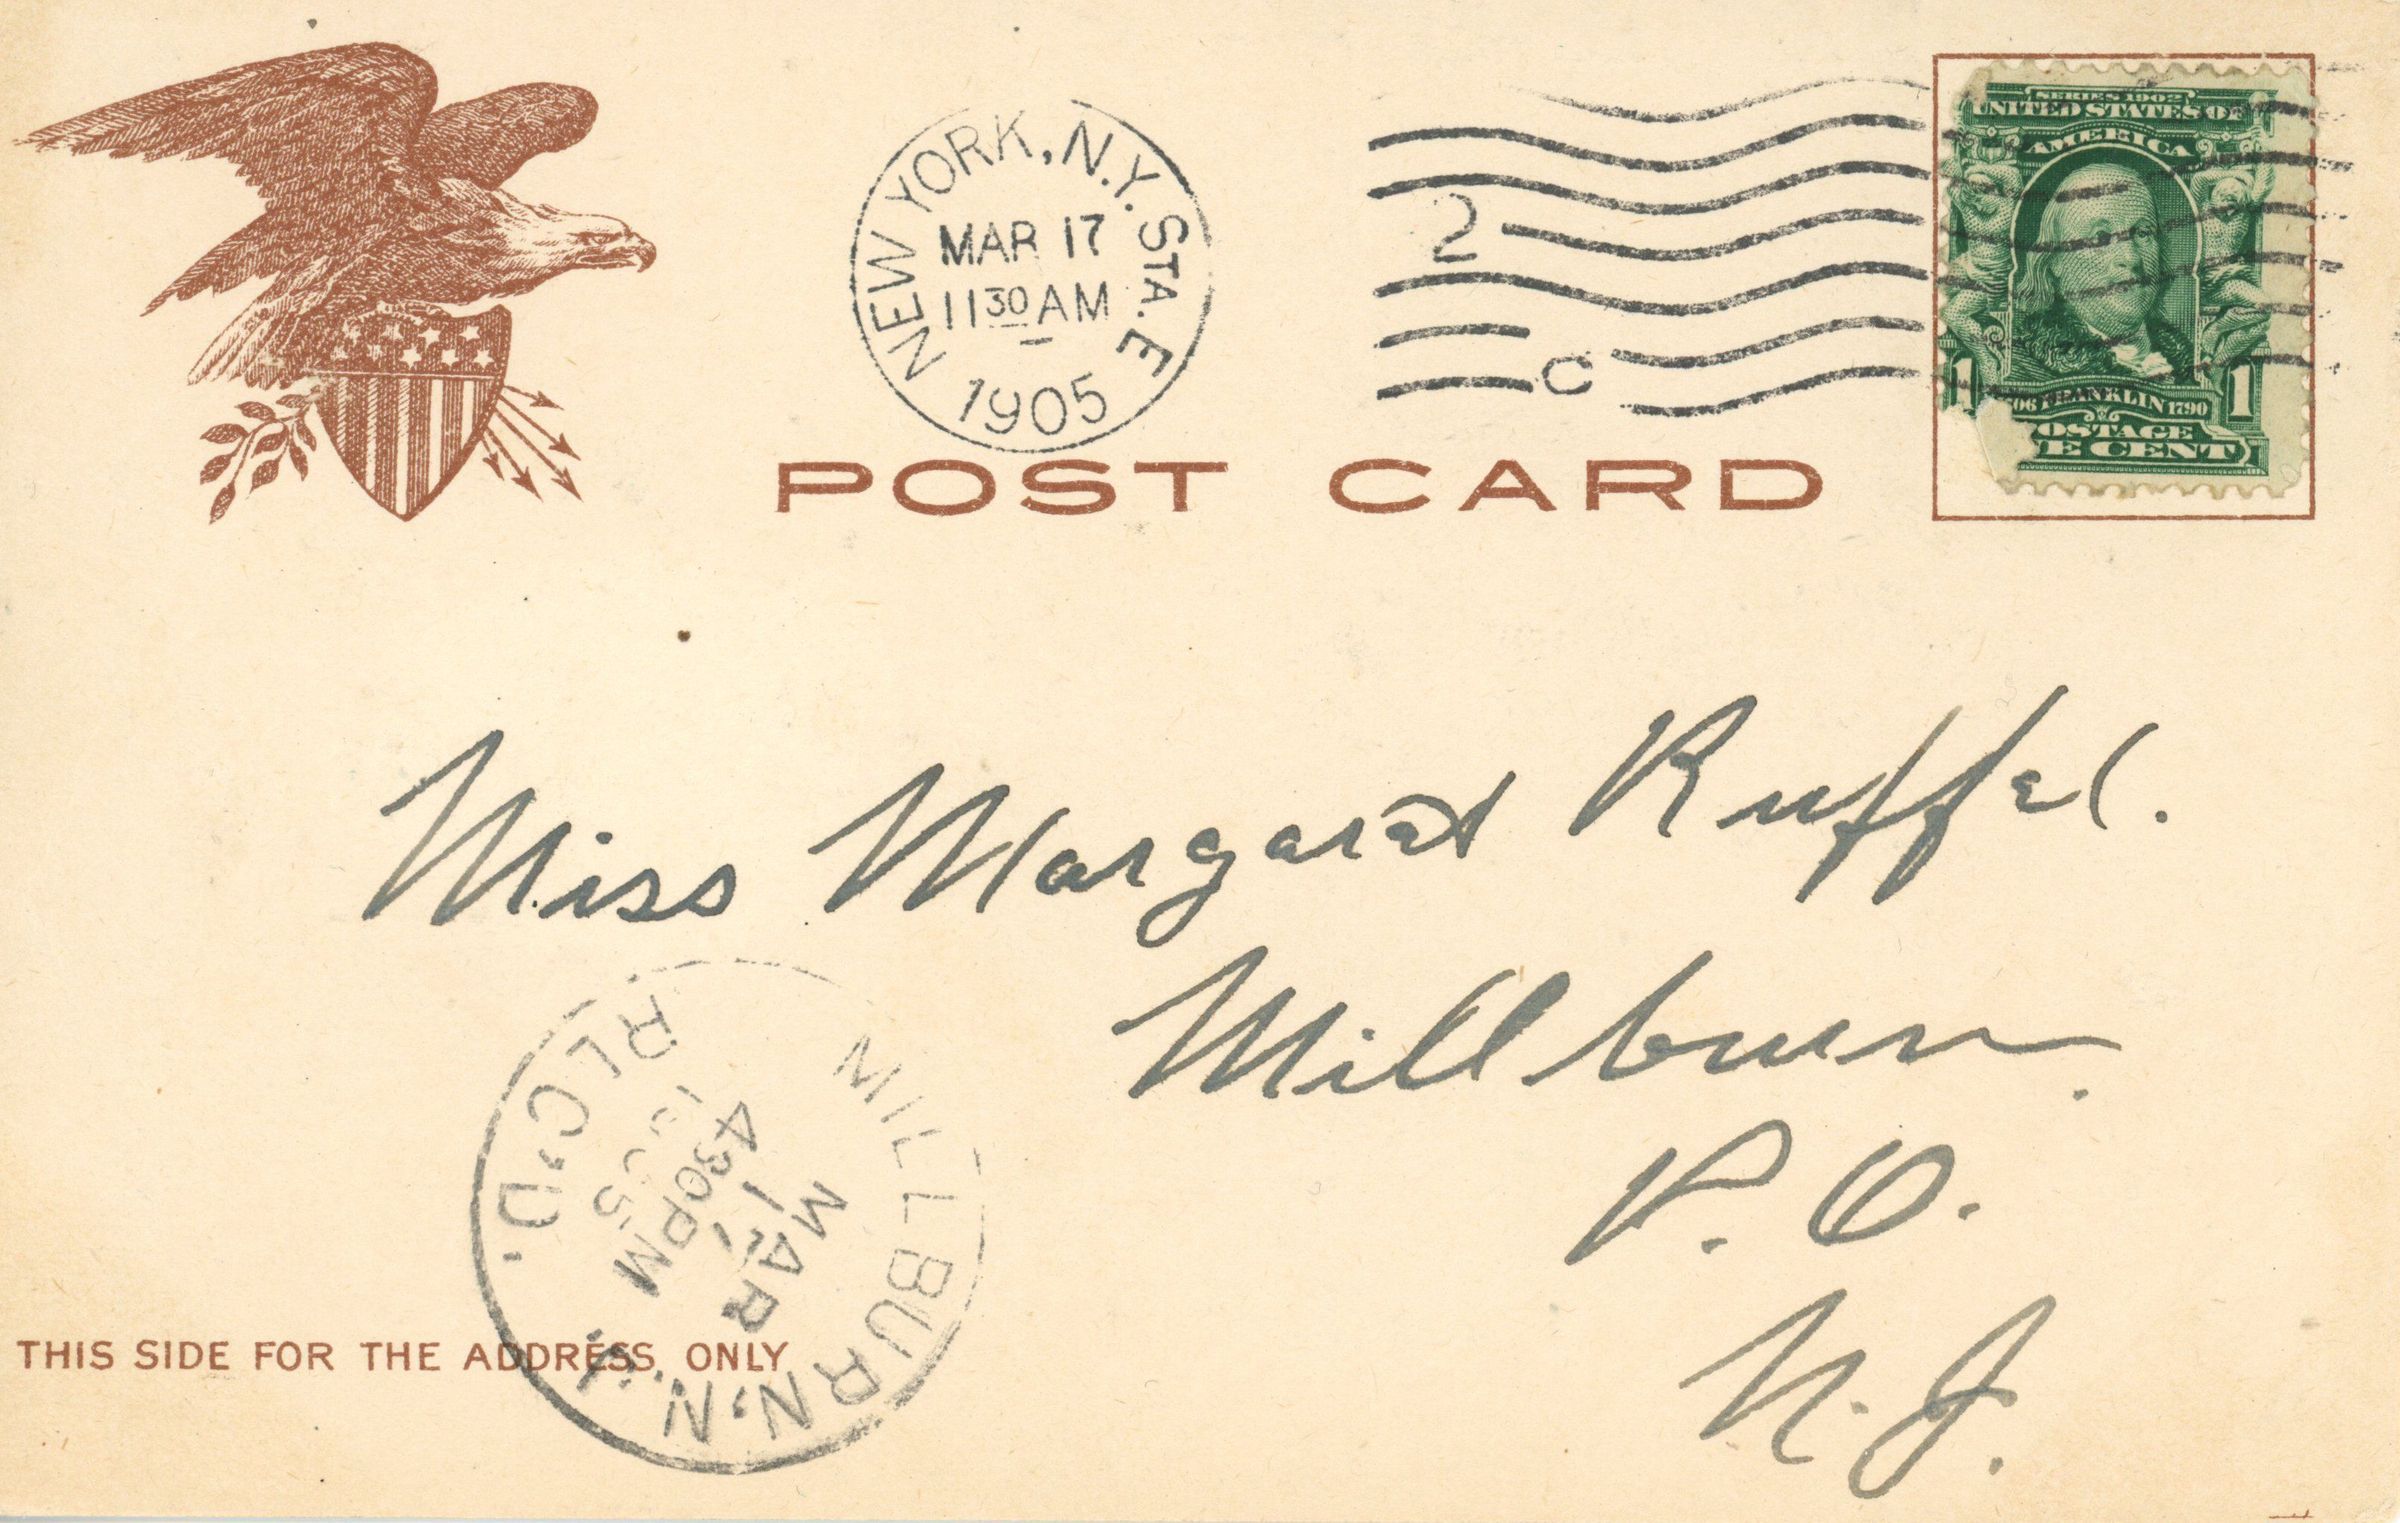 NEW YORK, N.Y. STA. E
MAR 17
11 30 AM
1905
2
C
SERIES 1902
UNITED STATES OF
AMERICA
1 1
06 FRANKLIN 1790
OSTAGE
E CENT
POST CARD
Miss Margaret Ruffel.
Millburn.
P. O.
N. J.
MILLBURN, N.J.
MAR
4 30 PM
REC'D.
THIS SIDE FOR THE ADDRESS ONLY